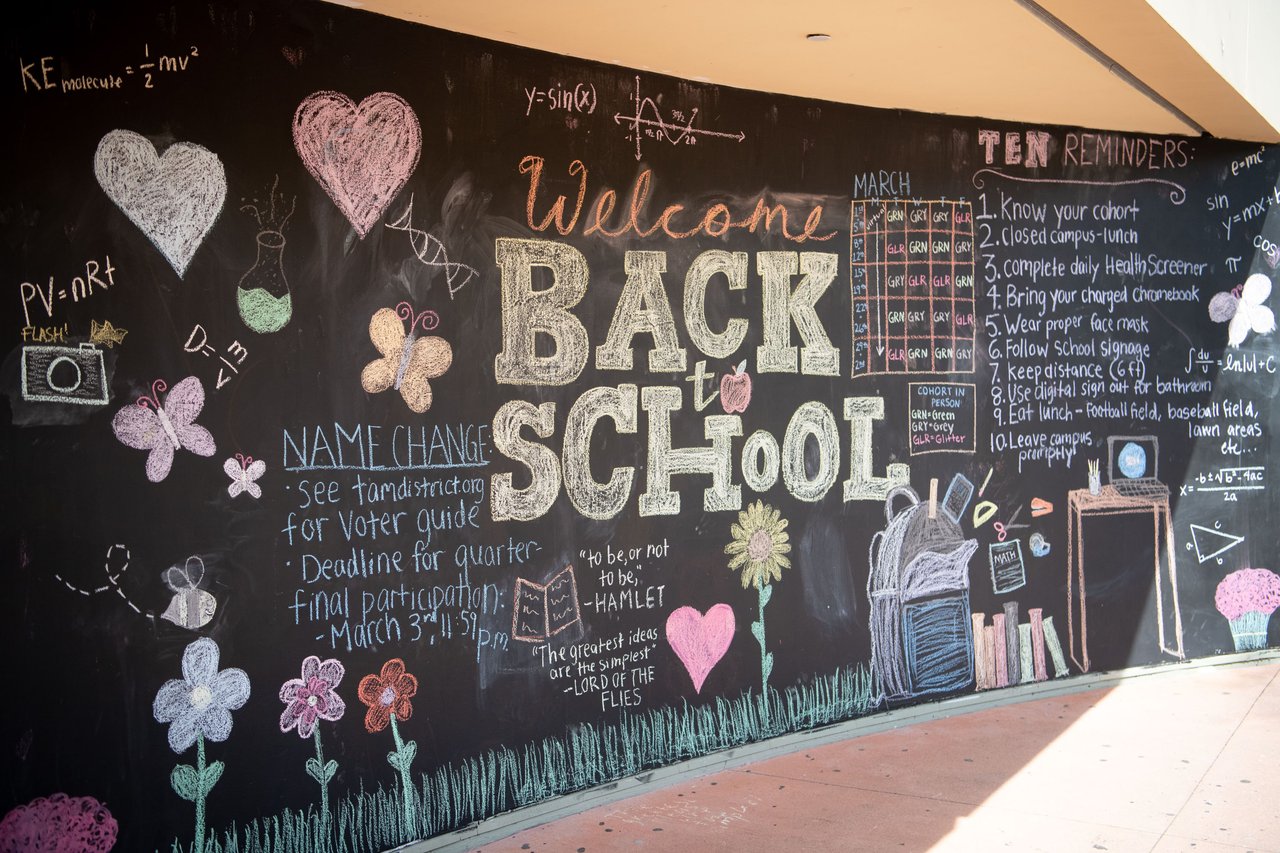 KE molecule = 1/2 mv²
PV=nRt
FLASH!
D=m/V
y=sin(x)
Welcome
BACK
to
SCHOOL
NAME CHANGE:
· see tamdistrict.org
for voter guide
· Deadline for quarter-
final participation:
- March 3rd, 11:59
p.m.
"to be, or not
to be,"
-HAMLET
"The greatest ideas
are the simplest"
-LORD OF THE
FLIES
MARCH
GRN GRY GRY GLR
GLR GRN GRN GRY
GRY GLR GLR GRN
GRN GRY GRY GLR
GLR GRN GRN GRY
COHORT IN
PERSON:
GRN=Green
GRY=Grey
GLR=Glitter
TEN REMINDERS:
1. Know your cohort
2. Closed campus-lunch
3. complete daily HealthScreener
4. Bring your charged chromebook
5. Wear proper face mask
6. Follow school signage
7. keep distance (6ft)
8. Use digital sign out for bathroom
9. Eat lunch - football field, baseball field,
lawn areas
etc...
10. Leave campus
promptly!
MATH
e=mc²
sin
y=mx+
cos
π
∫ du/u = ln|u|+C
x= -b±√b²-4ac / 2a
a
b
c